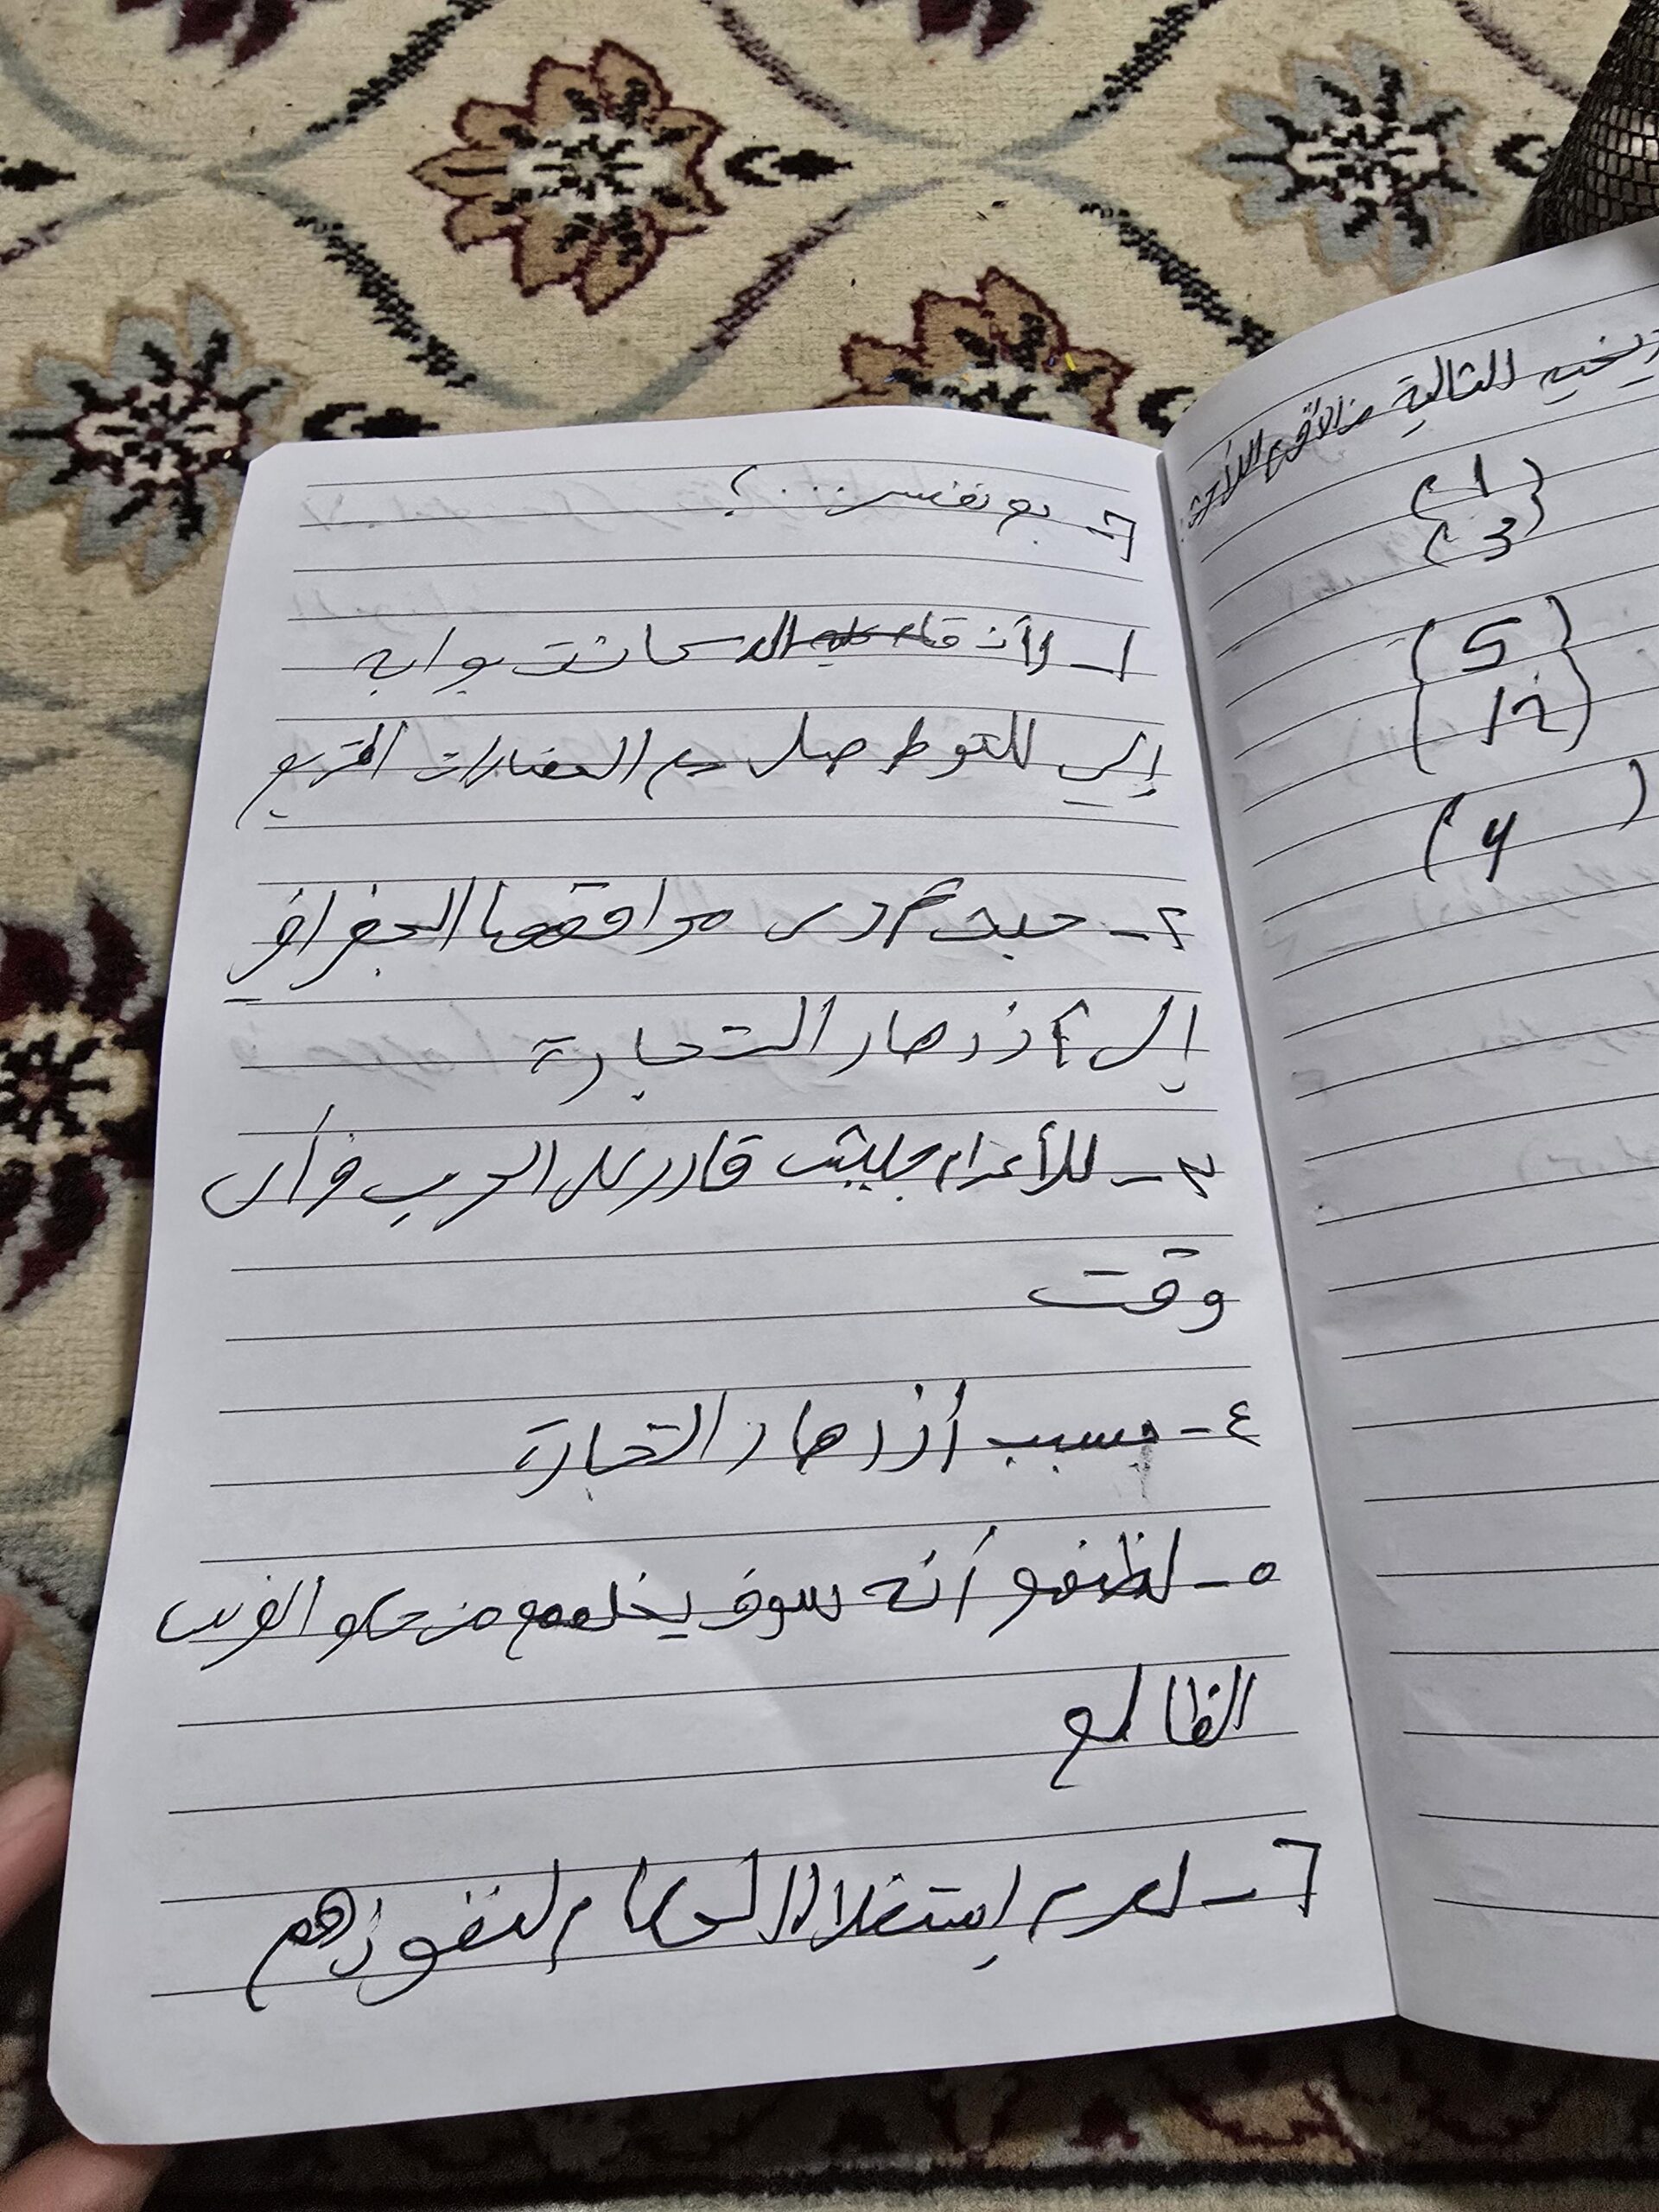 ٦- بم تفسر...؟
١- لأن كانت بوابه
إلي للتو صل مع الحضارات القديم
٢- حيث أدى مواقعها الجغرافي
إلى ازدهار التجارة
٣- للأعداد جليش قادر على الحرب في أى
وقت
٤- بسبب أزدهار التجارة
٥- لظنهو أنه سوف يخلصهم من حكو الفرس
الظالم
٦- لعدم إستغلال الحكام لنفوذهم
التالية من الأقدم للأحدث
(1)
(3)
(5)
(12)
(4)